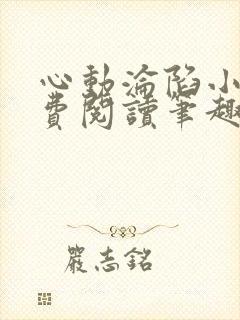 心動淪陷小
費閱讀筆趣
嚴志銘